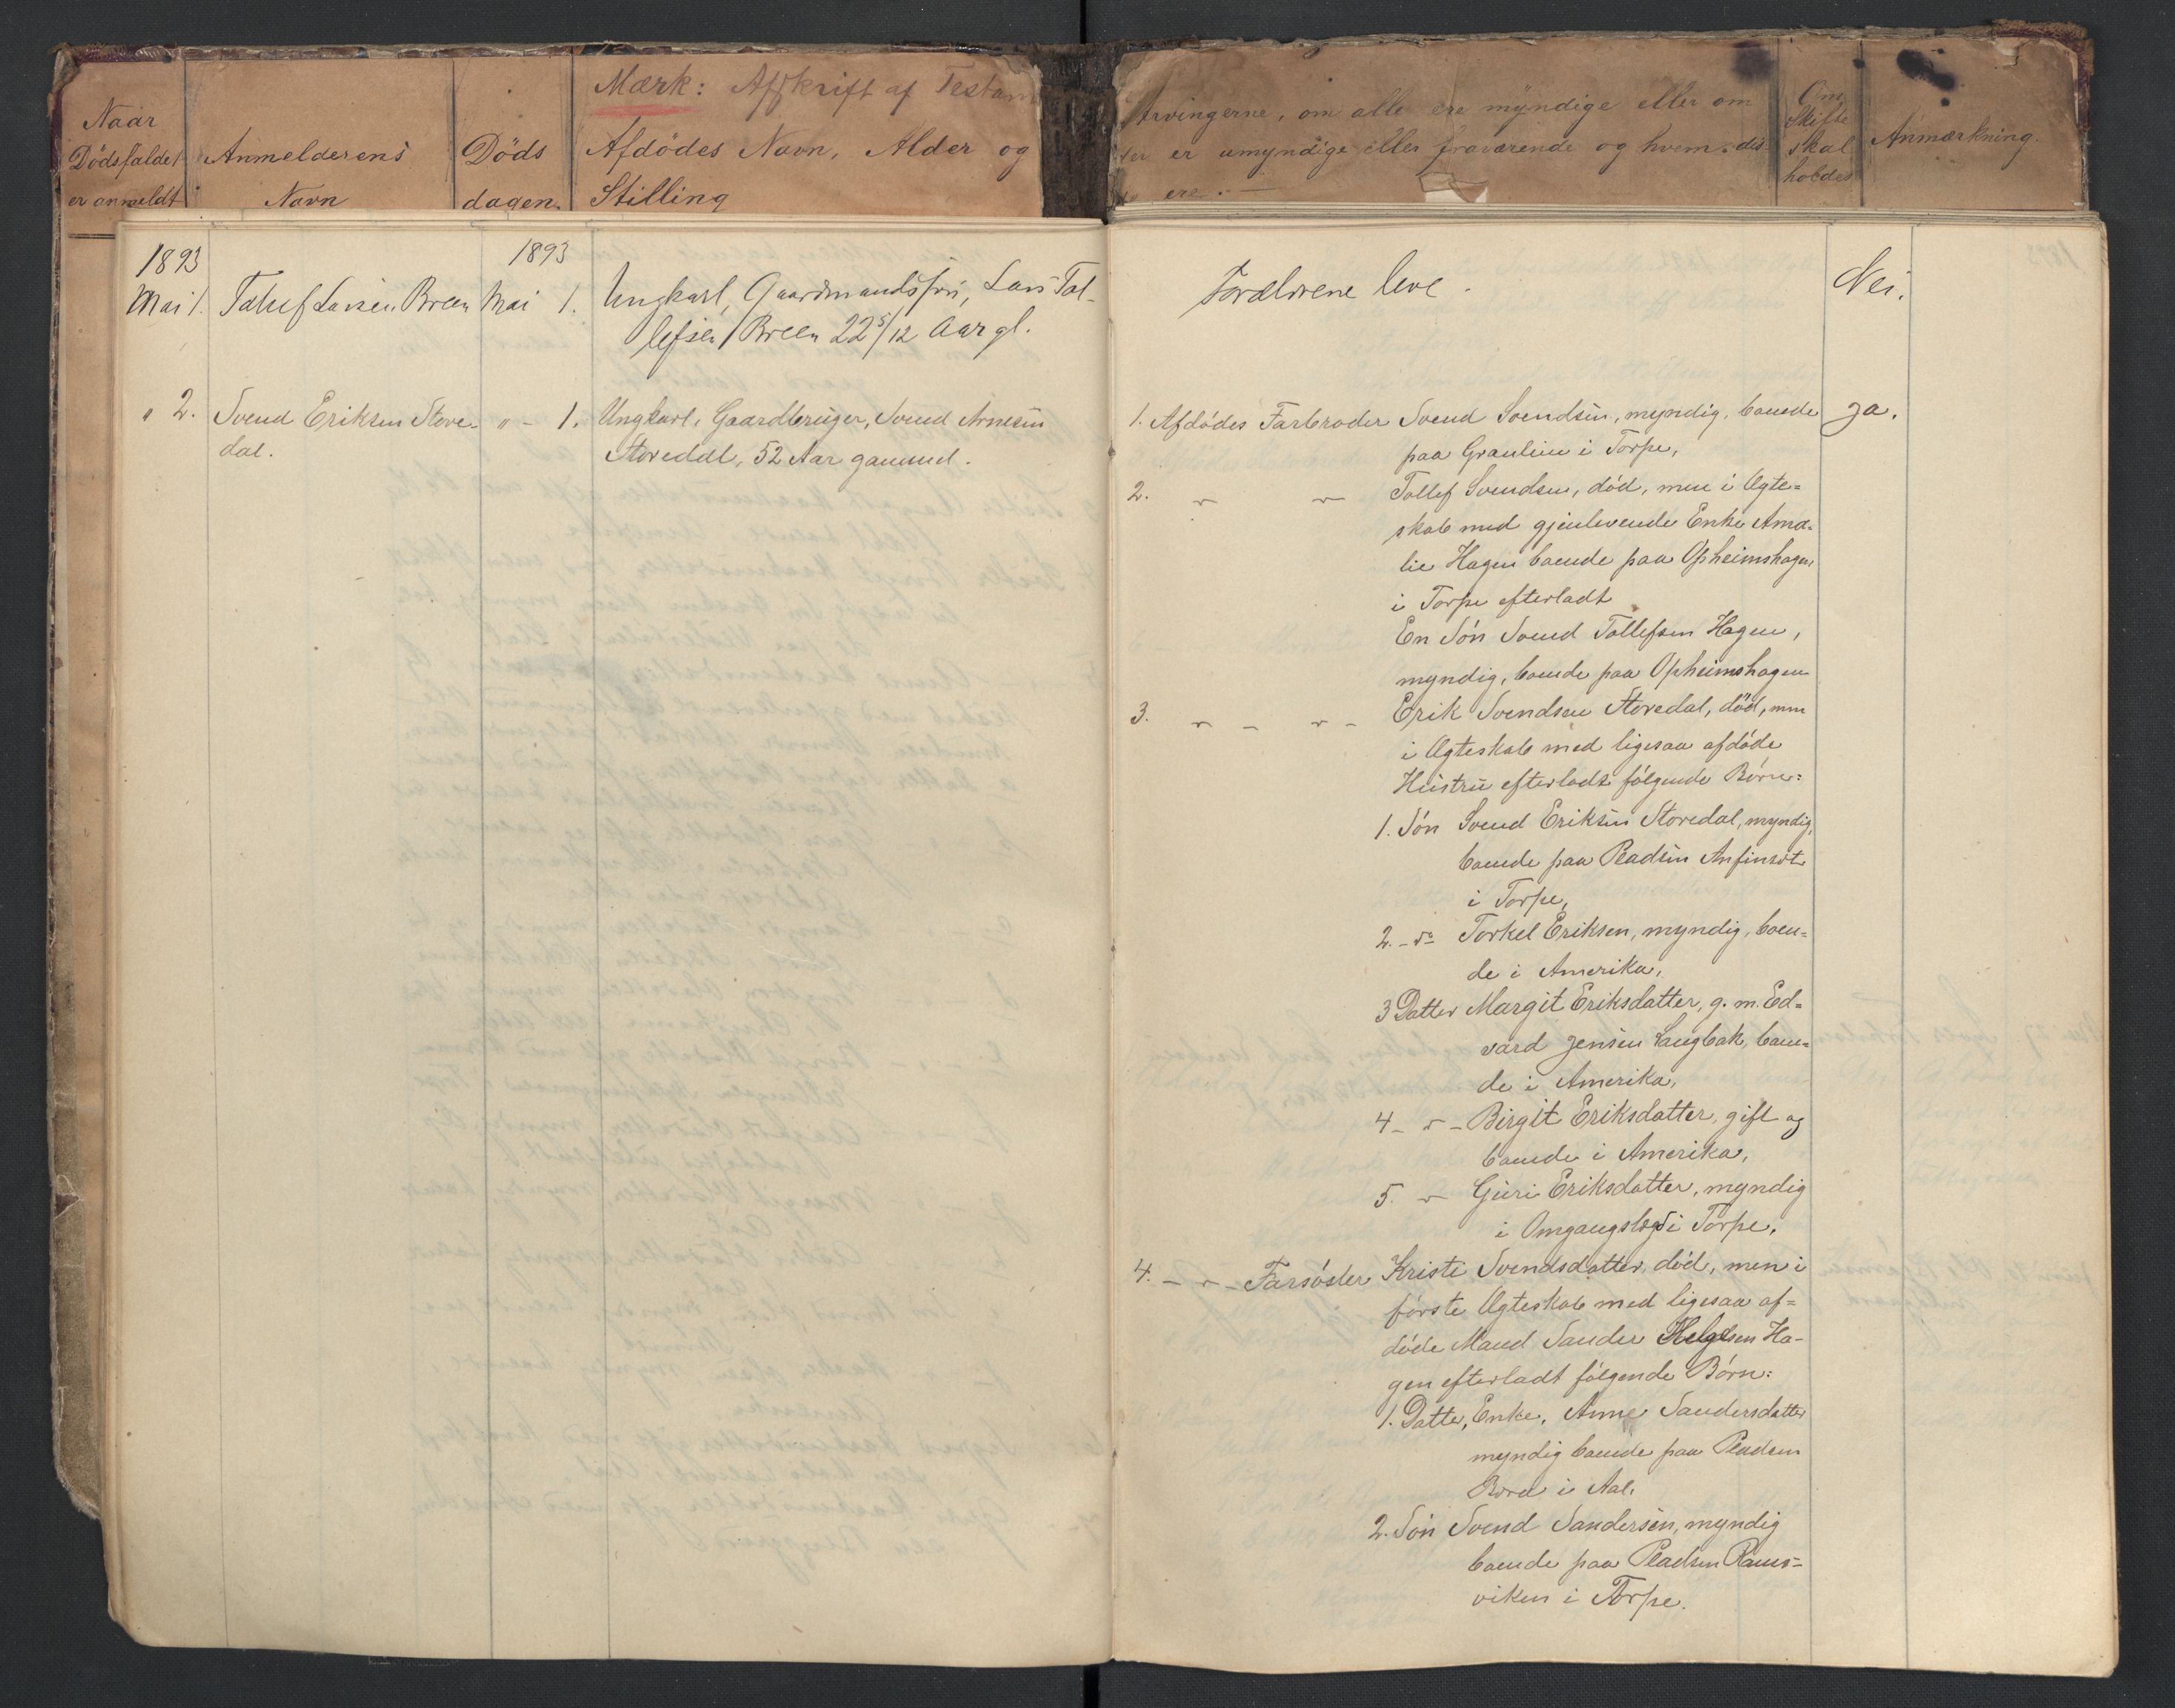 Mærk: Afskrift af Testam
Naar
Dödsfaldet
er anmeldt
Anmelderens
Navn
Döds
dagen.
Afdödes Navn, Alder og
Stilling
Arvingerne, om alle ere myndige eller om
er umyndige eller fraværende og hvem dis
ere. —
Om
Skifte
skal
holdes
Anmærkning.
1893
Mai 1.
Tollef Larsen Breen
1893
Mai 1.
Ungkarl, Gaardmandssøn, Lars Tol-
lefsen Breen 22 5/12 Aar gl.
Forældrene leve.
Nei.
" 2.
Svend Eriksen Store-
dal.
" - 1.
Ungkarl, Gaardbruger, Svend Arnesen
Storedal, 52 Aar gammel.
1. Afdødes Farbroder Svend Svendsen, myndig, boende
paa Granlien i Torpe,
Ja.
2. " " Tollef Svendsen, død, men i Ægte=
skab med gjenlevende Enke Ama=
lie Hagen boende paa Opheimshagen
i Torpe efterladt
En Søn Svend Tollefsen Hagen,
myndig, boende paa Opheimshagen
3. " - " - Erik Svendsen Storedal, død, men
i Ægteskab med ligesaa afdøde
Hustru efterladt følgende Børn:
1. Søn Svend Eriksen Storedal, myndig,
boende paa Pladsen Anfinset
i Torpe,
2. - do Torkel Eriksen, myndig, boen=
de i Amerika,
3 Datter Margit Eriksdatter, g. m. Ed=
vard Jensen Langbak, boen=
de i Amerika,
4 - " - Birgit Eriksdatter, gift og
boende i Amerika,
5. " Guri Eriksdatter, myndig
i Omgangslægd i Torpe.
4. - " - Farsøster Kristi Svendsdatter, død, men i
første Ægteskab med ligesaa af=
døde Mand Sander Helgesen Ha-
gen efterladt følgende Børn:
1. Datter, Enke, Anne Sandersdatter
myndig boende paa Pladsen
i Aal.
2. Søn Svend Sandersen, myndig
boende paa Pladsen Rams-
viken i Torpe.